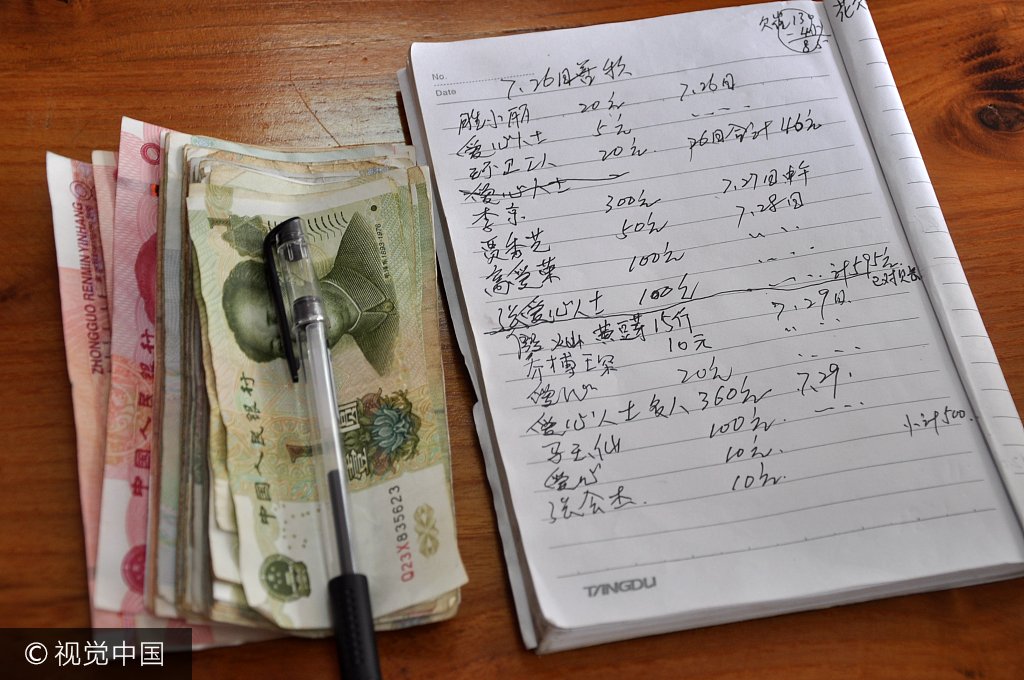 ZHONGGUO RENMIN YINHANG
中国人民银行
中国人民银行
1
壹圆
Q23X835623
No.
Date
7.26日善款
欠 130
花
20元 7.26日
爱心人士 5元 〃 〃
环卫工人 20元 26日合计 46元
爱心人士
李京 300元 7.27日中午
贾秀芝 50元 7.28日
高学荣 100元 〃 〃
张爱心人士 100元 〃 〃 计595元
黄豆芽15斤 7.29日
乔博 10元 〃 〃
爱心 20元 〃 〃
爱心人士多人 360元 7.29.
马玉仙 100元 〃 〃
爱心 10元 小计500
张会杰 10元
TANGDU
© 视觉中国